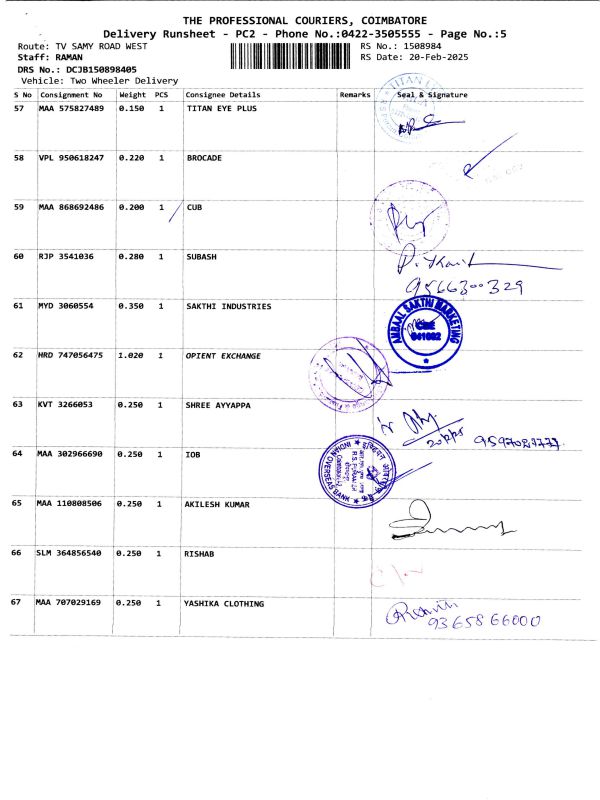 THE PROFESSIONAL COURIERS, COIMBATORE
Delivery Runsheet - PC2 - Phone No.:0422-3505555 - Page No.:5
Route: TV SAMY ROAD WEST RS No.: 1508984
Staff: RAMAN RS Date: 20-Feb-2025
DRS No.: DCJB150898405
Vehicle: Two Wheeler Delivery
S No Consignment No Weight PCS Consignee Details Remarks Seal & Signature
57 MAA 575827489 0.150 1 TITAN EYE PLUS
58 VPL 950618247 0.220 1 BROCADE
59 MAA 868692486 0.200 1 CUB
60 RJP 3541036 0.280 1 SUBASH
9566300329
61 MYD 3060554 0.350 1 SAKTHI INDUSTRIES
AMBAAL SAKTHI MARKETING
CBE
641002
62 HRD 747056475 1.020 1 OPIENT EXCHANGE
63 KVT 3266053 0.250 1 SHREE AYYAPPA
64 MAA 302966690 0.250 1 IOB
INDIAN OVERSEAS BANK
65 MAA 110808506 0.250 1 AKILESH KUMAR
66 SLM 364856540 0.250 1 RISHAB
67 MAA 707029169 0.250 1 YASHIKA CLOTHING
9365866000